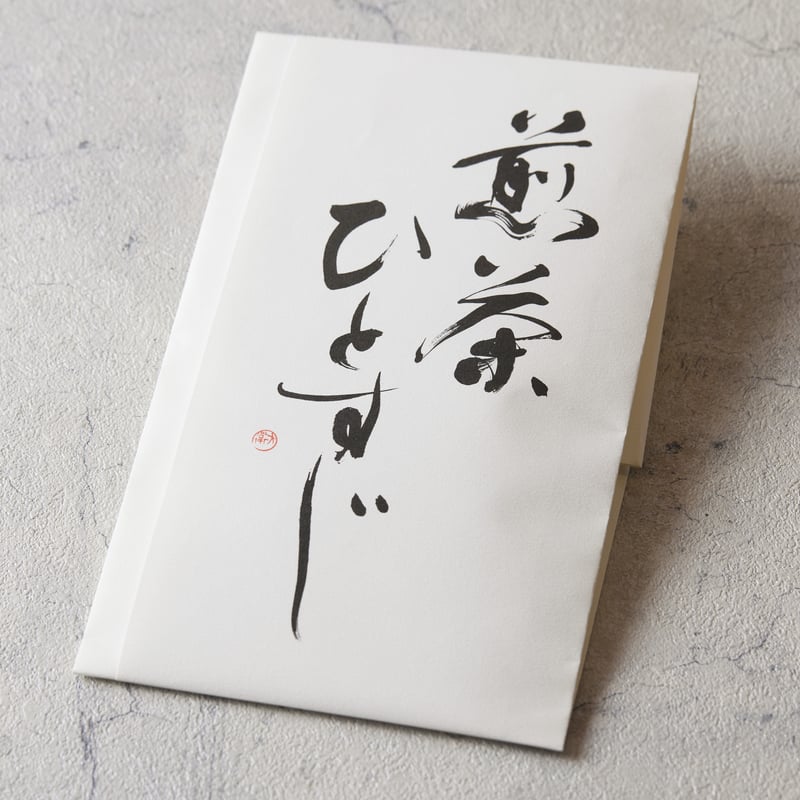 煎茶
ひとすじ